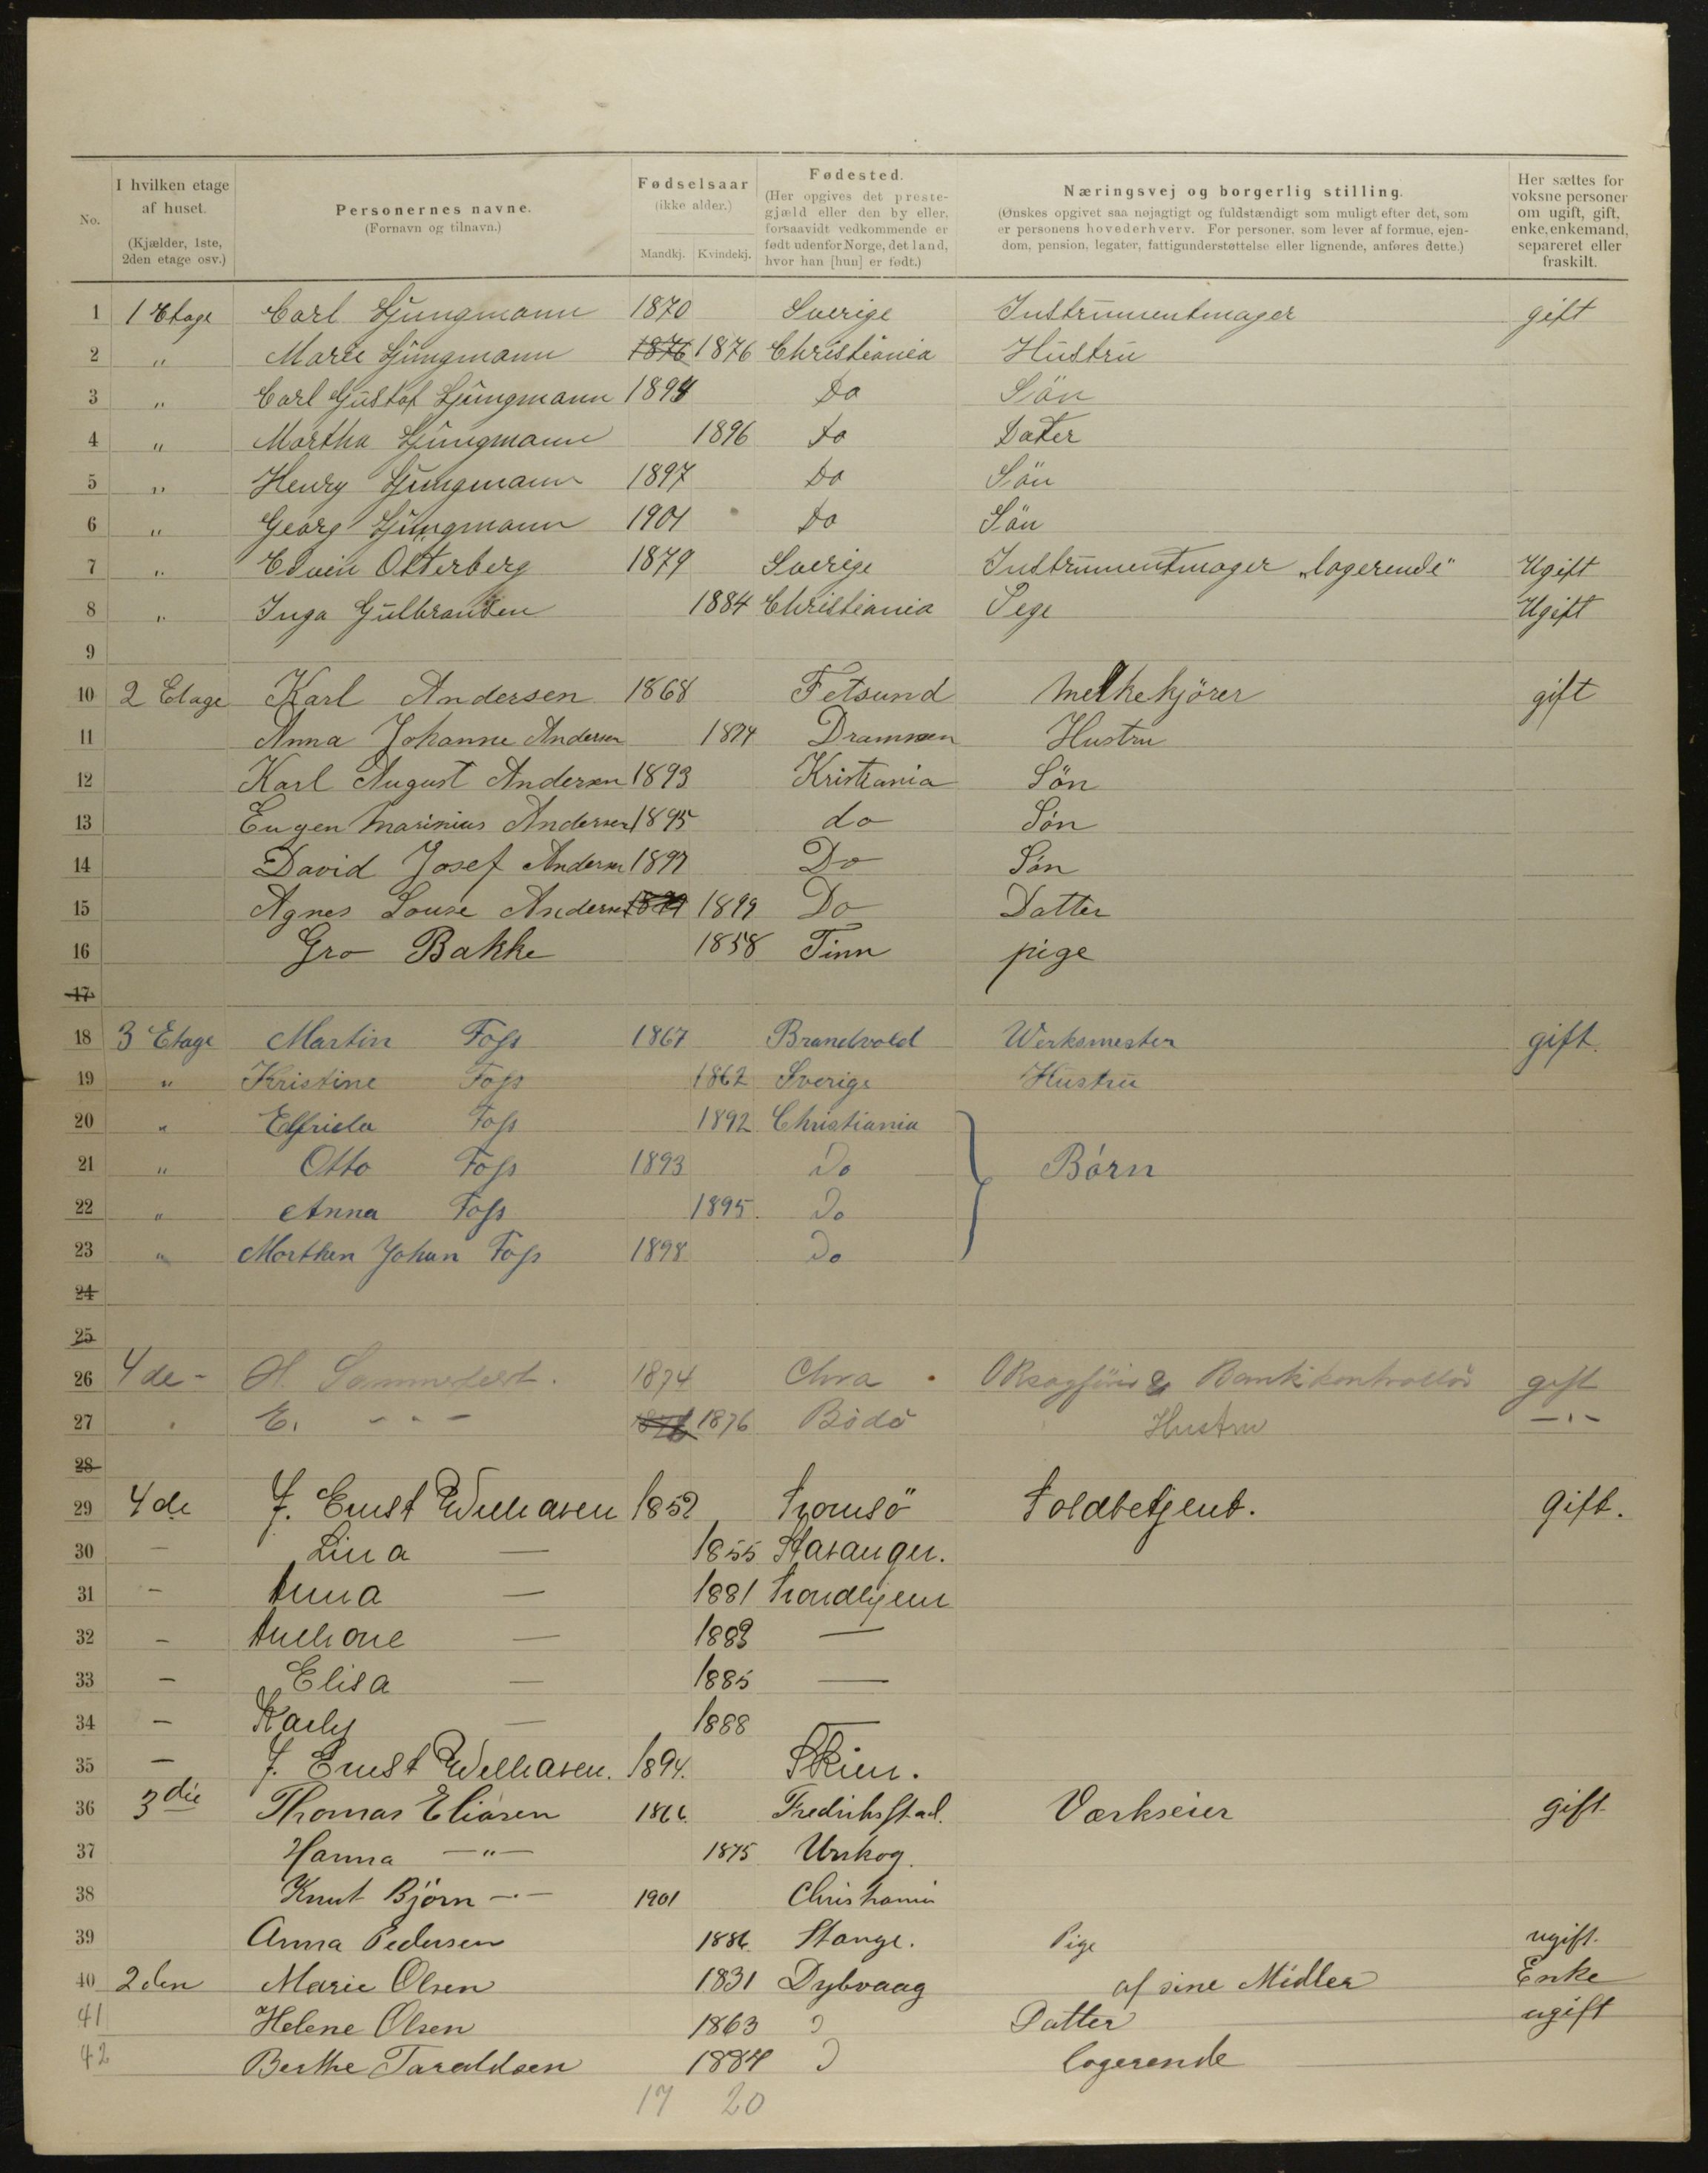 No.
I hvilken etage af huset. (Kjælder, 1ste, 2den etage osv.)
Personernes navne. (Fornavn og tilnavn.)
Fødselsaar (ikke alder.) Mandkj. Kvindekj.
Fødested. (Her opgives det prestegjæld eller den by eller, forsaavidt vedkommende er født udenfor Norge, det land, hvor han [hun] er født.)
Næringsvej og borgerlig stilling. (Ønskes opgivet saa nøjagtigt og fuldstændigt som muligt efter det, som er personens hovederhverv. For personer, som lever af formue, ejendom, pension, legater, fattigunderstøttelse eller lignende, anføres dette.)
Her sættes for voksne personer om ugift, gift, enke, enkemand, separeret eller fraskilt.
1 1 Etage Carl Ljungmann 1870 Sverige Instrumentmager gift
2 " Marie Ljungmann 1876 1876 Christiania Hustru
3 " Carl Gustaf Ljungmann 1894 Do Sön
4 " Martha Ljungmann 1896 Do Dater
5 " Henry Ljungmann 1897 Do Sön
6 " Georg Ljungmann 1901 Do Sön
7 " Edvin Otterberg 1879 Sverige Instrumentmager „logerende" Ugift
8 " Inga Gulbransen 1884 Christiania Pege Ugift
9
10 2 Etage Karl Andersen 1868 Fetsund Melkekjörer gift
11 Anna Johanne Andersen 1874 Drammen Hustru
12 Karl August Andersen 1893 Kristiania Sön
13 Eugen Marinius Andersen 1895 do Sön
14 David Josef Andersen 1897 Do Sön
15 Agnes Louse Andersen 1899 Do Datter
16 Gro Bakke 1858 Tinn pige
17
18 3 Etage Martin Foss 1867 Brandvold Werksmester gift.
19 " Kristine Foss 1862 Sverige Hustru
20 " Elfrida Foss 1892 Christiania
21 " Otto Foss 1893 Do Börn
22 " Anna Foss 1895. Do
23 " Morthen Johan Foss 1898 Do
24
25
26 4de - 1874 Chra. Bankkontrollör gift
27 " E. - " - 1876 Bodö Hustru - " -
28
29 4de J. Ernst Willassen 1852 Tromsö Toldbetjent. Gift.
30 — Lina — 1855 Stavanger.
31 — Anna — 1881 Trondhjem
32 — — 1883 —
33 — Elisa — 1885 —
34 — Karly — 1888 —
35 — J. Ernst Willassen. 1894. Skien.
36 3die Thomas Eliasen 1866. Fredriksstad. Værkseier gift
37 Hanna — " — 1875 Urskog.
38 Knut Björn — " — 1901 Christiania
39 Anna Pedersen 1886. Stange. Pige ugift.
40 2den Marie Olsen 1831 Dybvaag af sine Midler Enke
41 Helene Olsen 1863 " Datter ugift
42 Berthe Taraldsen 1884 " logerende
17 20